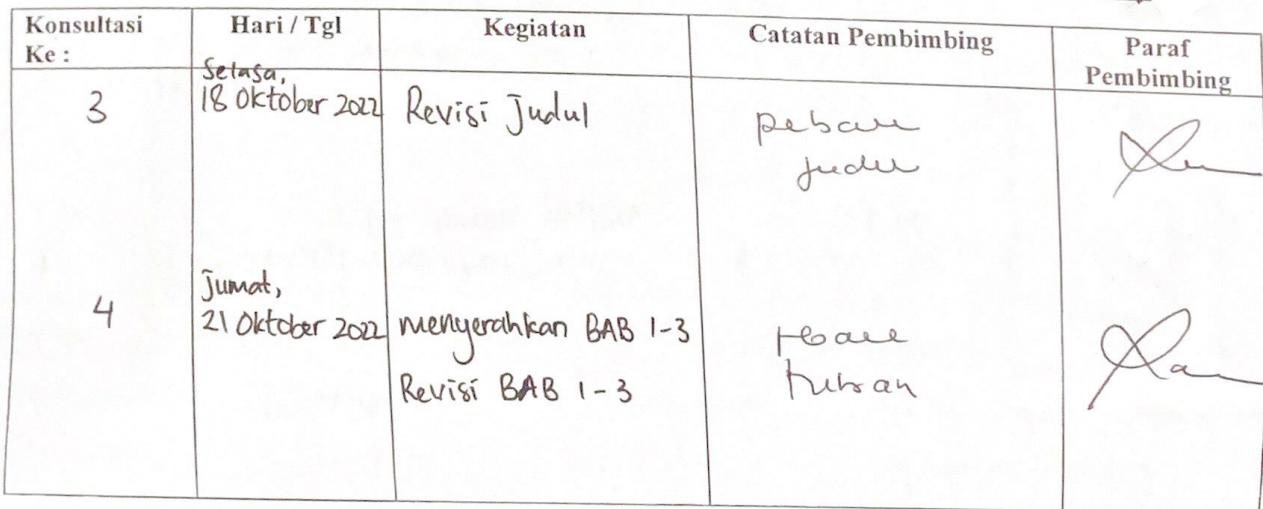 Konsultasi Ke :
Hari / Tgl
Kegiatan
Catatan Pembimbing
Paraf Pembimbing
3
Selasa,
18 Oktober 2022
Revisi Judul
4
Jumat,
21 Oktober 2022
menyerahkan BAB 1-3
Revisi BAB 1-3